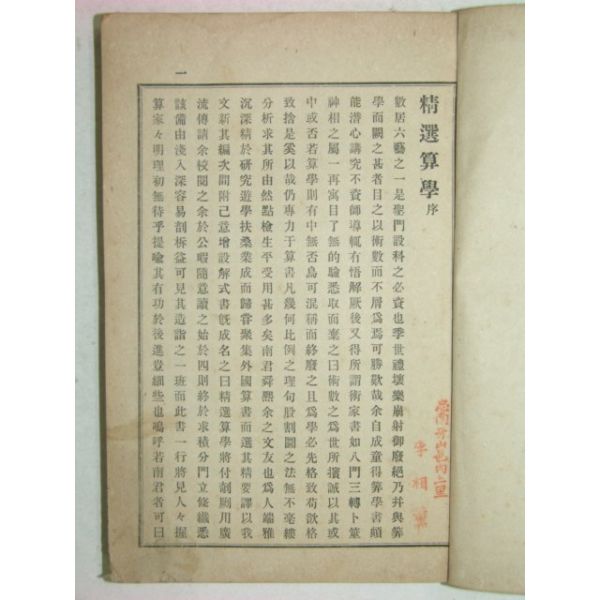 精選算學序
數居六藝之一是聖門設科之必資也季世禮壞樂崩射御廢絕乃幷與筭
學而闕之甚者目之以術數而不屑爲焉可勝歎哉余自成童得筭學書頗
能潜心講究不資師導輒有悟解厥後又得所謂術家書如八門三轉卜筮
神相之屬一再寓目了無的驗悉取而棄之曰術數之爲世所擯誠以其或
中或否若算學則有中無否烏可混稱而終廢之且爲學必先格致苟欲格
致捨是奚以哉仍專力于算書凡幾何比例之理句股割圜之法無不毫縷
分析求其所由然點檢生平受用甚多矣南君舜熙余之文友也爲人端雅
沉深精於硏究遊學扶桑業成而歸甞聚集外國算書而選其精要譯以我
文新其編次間附己意增設解式書旣成名之曰精選算學將付剞劂用廣
流傳請余校閱之余於公暇隨意讀之始於四則終於求積分門立條纖悉
該備由淺入深容易剖柝益可見其造詣之一班而此書一行將見人々握
算家々明理初無待乎提喩其有功於後進豈細些也嗚呼若南君者可曰
一